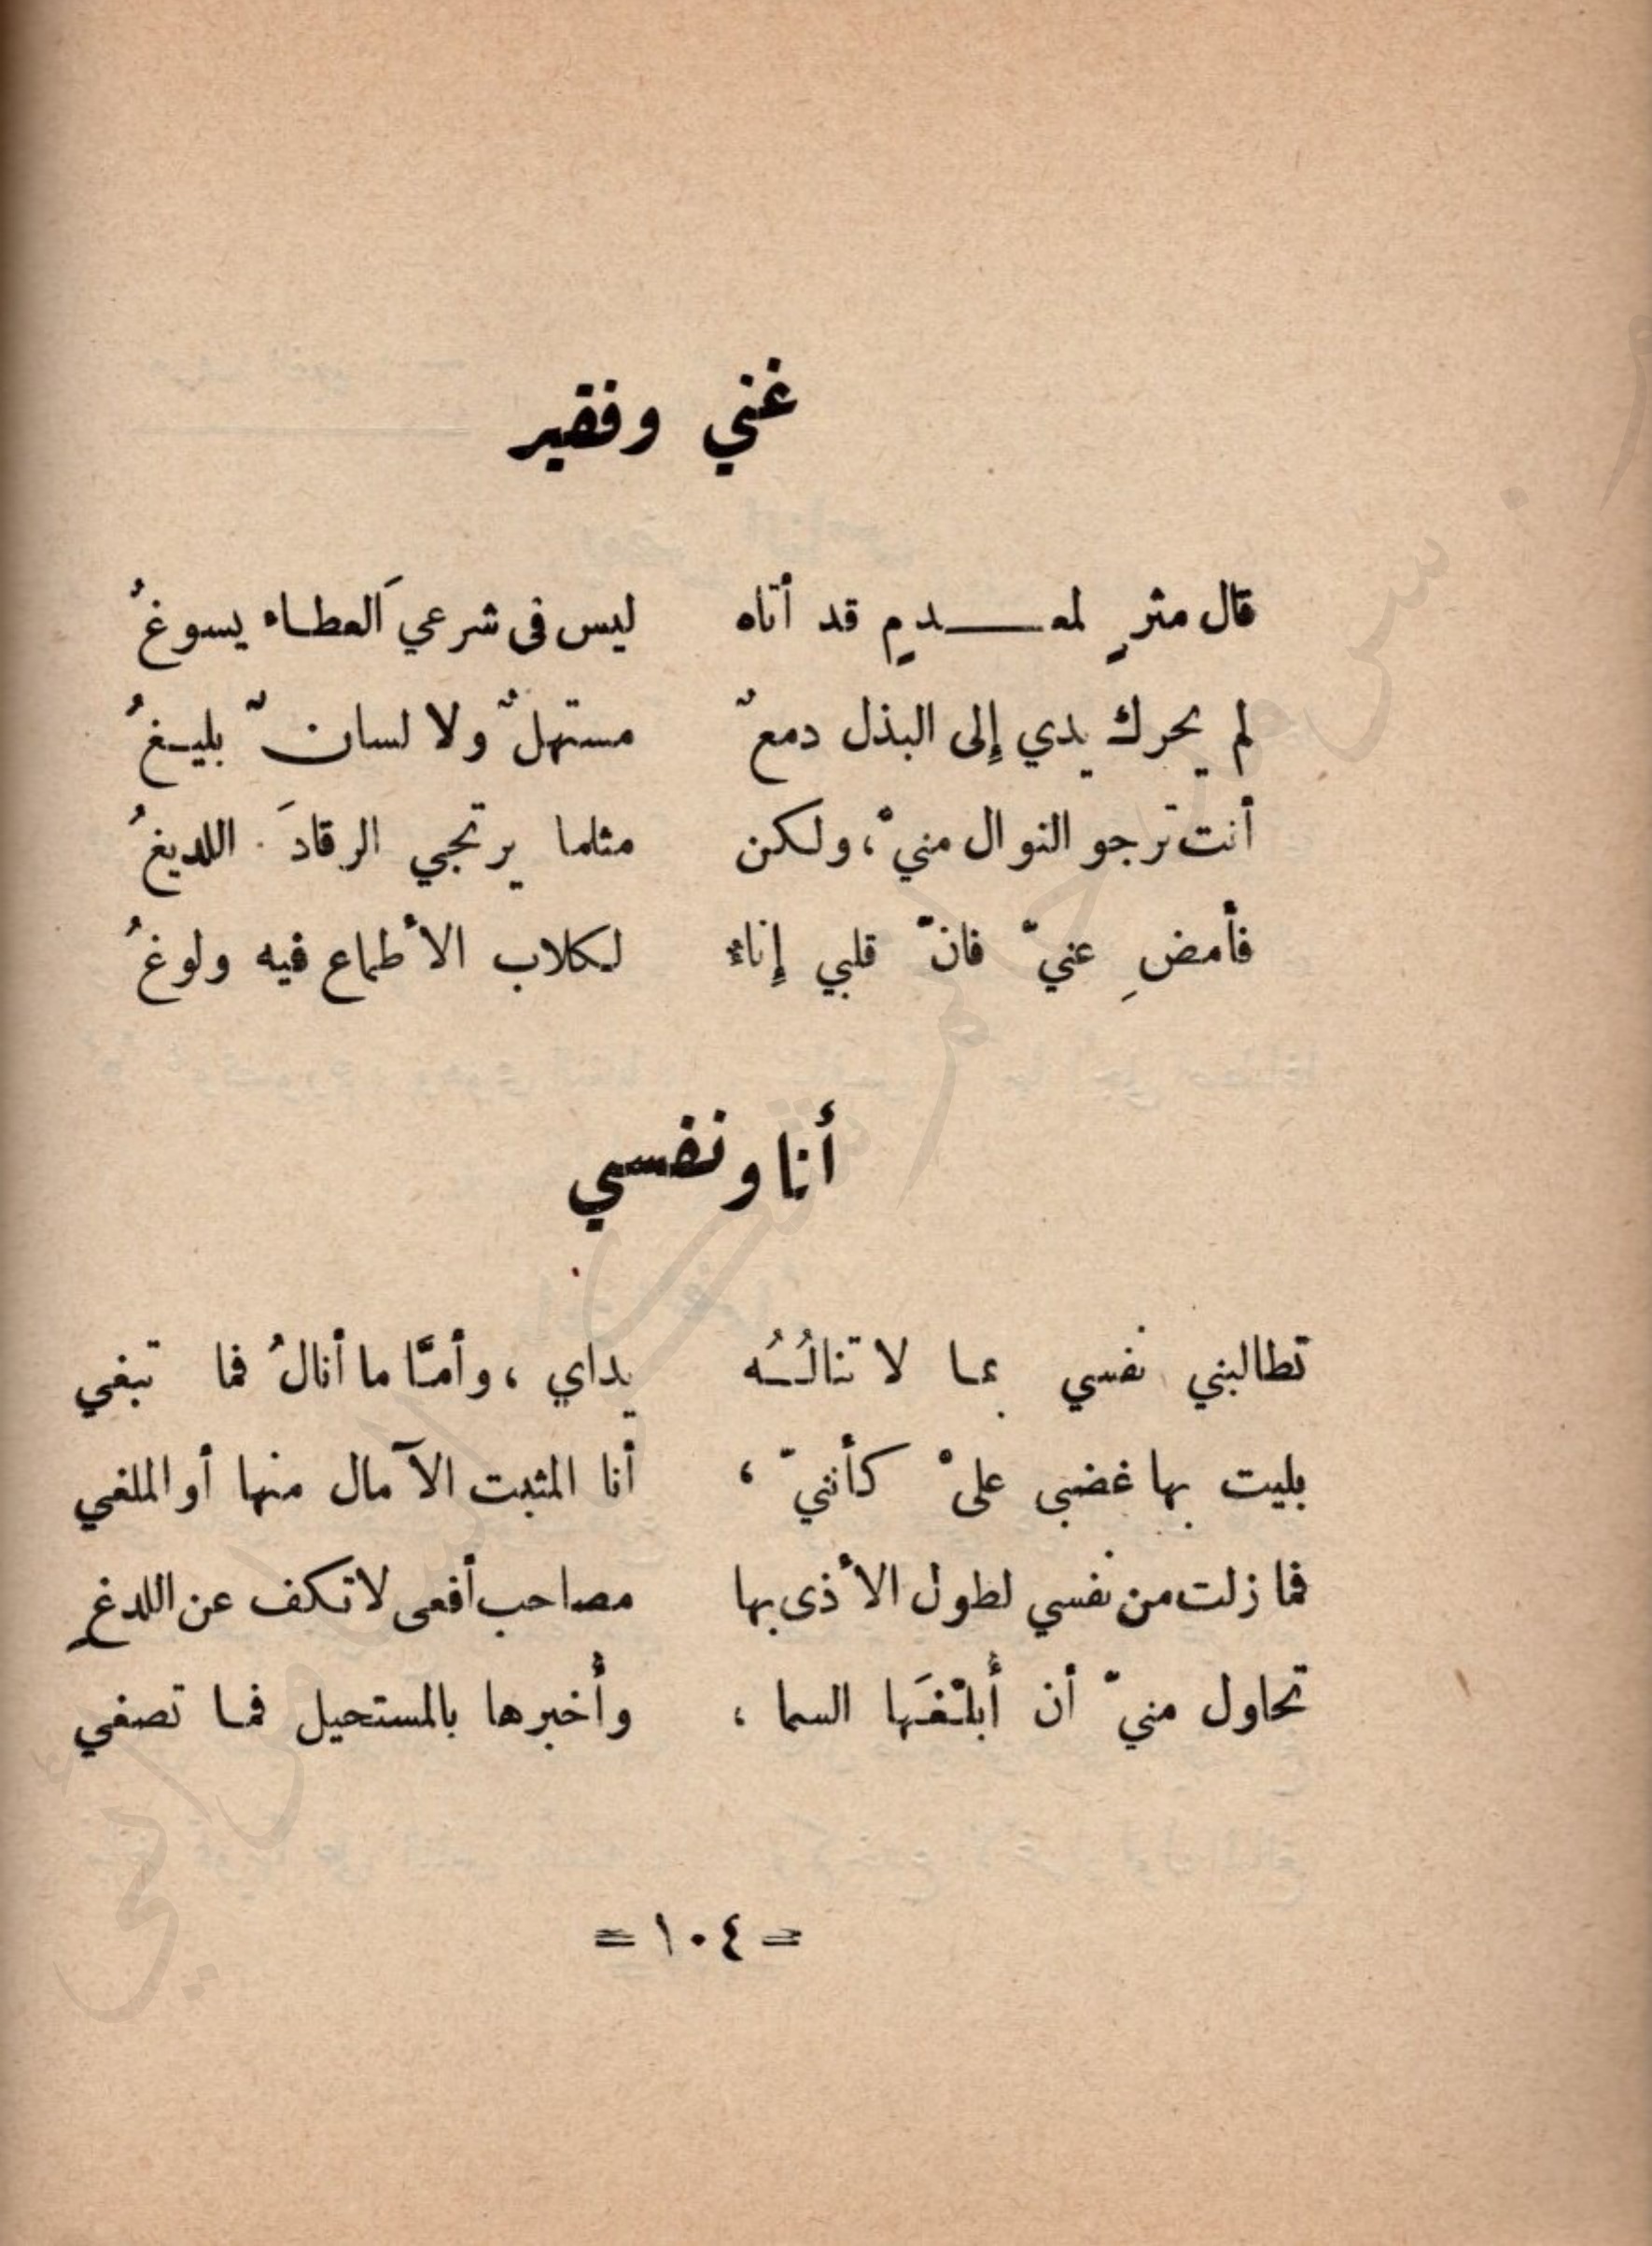 غني وفقير
قال مثرٍ لمعـــدمٍ قد أتاه ليس فى شرعيَ العطاء يسوغُ
لم يحرك يدي إلى البذل دمعٌ مستهلٌ ولا لسانٌ بليغُ
أنت ترجو النوال منيْ، ولكن مثلما يرتجي الرقادَ اللديغُ
فأمضِ عنيّ فانّ قلبي إناءٌ لكلاب الأطماع فيه ولوغُ
أنا ونفسي
تطالبني نفسي بما لا تنالُـُه يداي ، وأمّا ما أنالُ فما تبغي
بليت بها غضبى عليْ كأننيّ ، أنا المثبت الآمال منها أو الملغي
فما زلت من نفسي لطول الأذى بها مصاحب أفعى لا تكف عن اللدغِ
تحاول منيّ أن أُبلّغَها السما ، وأُخبرها بالمستحيل فما تصغي
= ١٠٤ =